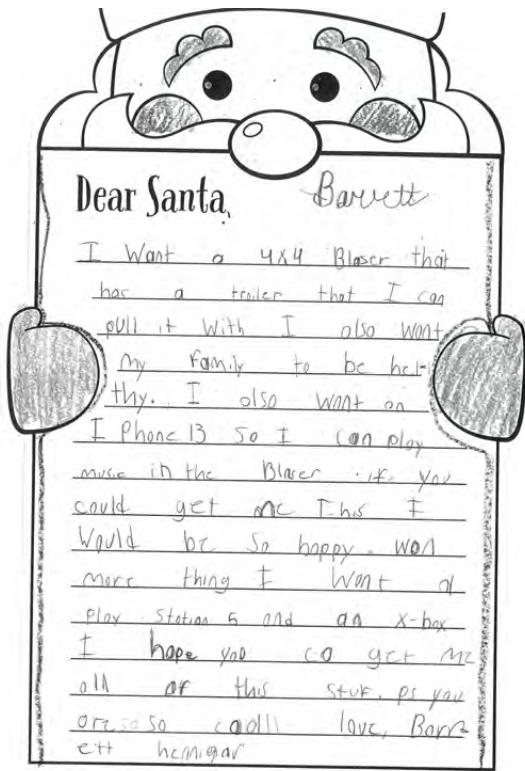 Dear Santa, Barrett
I Want a 4x4 Blaser that
has a trailer that I can
pull it with I also want
my family to be hel-
thy. I also want an
I Phone 13 so I can play
music in the Blaser. if you
could get me This I
Would be so happy. won
more thing I Want a
play station 5 and an x-box
I hope you co get me
all of this stuf. ps you
are so so cool! love, Barr
ett hemigar